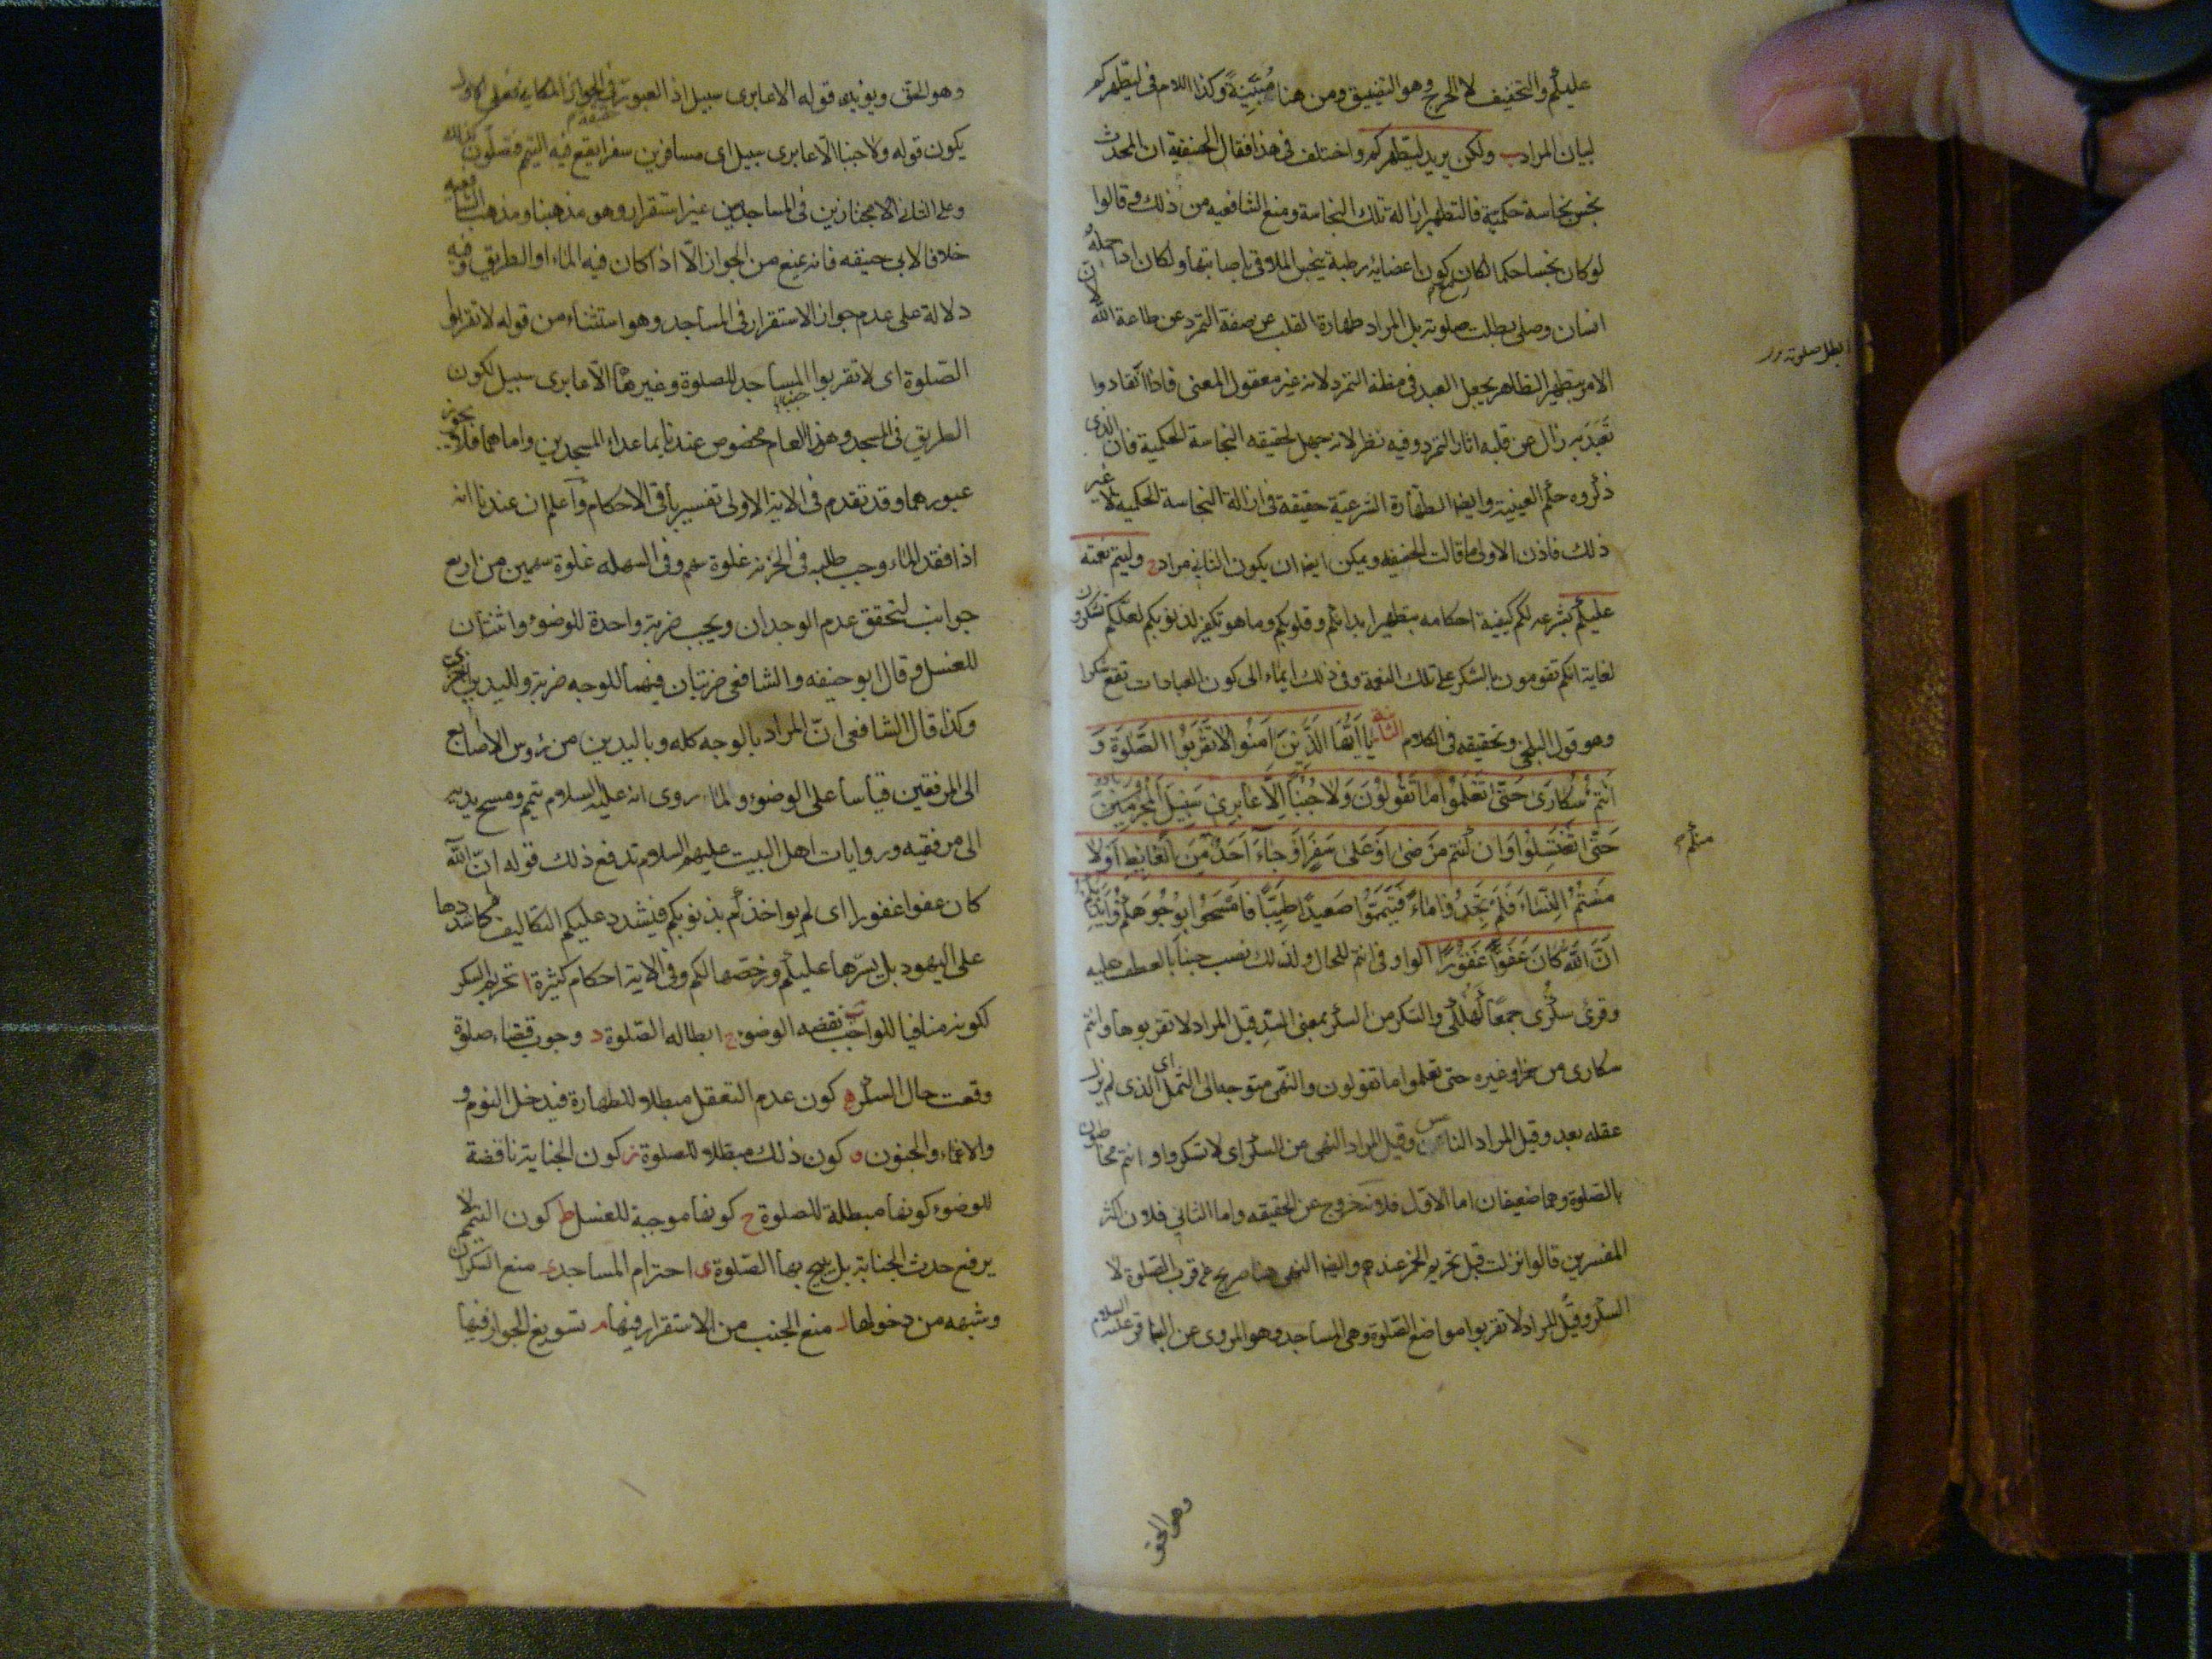 عليكم والتخفيف لا الحرج وهو التضييق ومن هنا مُبَيِّنِةً وكذا اللام فى ليطهركم
لبيان المراد ب ولكن يريد ليطهركم واختلف فى هذا فقال الحنفية ان المحدث
نجس نجاسة حكمية فالتطهير ازالة تلك النجاسة ومنع الشافعيه من ذلك وقالوا
لو كان نجسا حكما لكان كون اعضايه رطبة ينجس الملاقى باصابتها ولكان اذا حمله
انسان وصلى بطلت صلوته بل المراد طهارة القلب عن صفة التمرد عن طاعة الله لان
ابطل صلوته
الامر بتطهير الظاهر يجعل العبد فى مظنة التمرد لانه غير معقول المعنى فاذا انقادوا
تعبد به زال عن قلبه اثار التمرد وفيه نظر لانه جهل لحقيقه النجاسة الحكمية فان الذى
ذكروه حكم العينية وايضا الطهارة الشرعية حقيقة فى ازالة النجاسة الحكميه لا غير
ذلك فاذن الاولى ما قالت الحنفيه ويمكن ايضا ان يكون الثانى مراد ج وليتم نعمته
عليكم بشرعه لكم كيفية احكامه بتطهير ابدانكم وقلوبكم وما هو تكفير لذنوبكم لعلكم تشكرون
لغاية انكم تقومون بالشكر على تلك النعمة وفى ذلك ايماء الى كون العبادات تقع شكرا
وهو قول البلخى وتحقيقه فى الكلام الثانية يا اَيُّهَا الَّذِينَ اٰمَنُوا لا تَقْرَبُوا الصَّلٰوةَ وَ
اَنْتُمْ سُكَارَى حَتَّى تَعْلَمُوا مَا تَقُولُونَ وَلا جُنُبًا اِلّا عَابِرِى سَبِيل
حَتَّى تَغْتَسِلُوا وَاِنْ كُنتم مَرْضى اَوْ عَلَى سَفَرٍ اَوْ جَاءَ اَحَدٌ مِنَ الْغَايِطِ اَوْ لا
منكم صح
مَسْتُمُ النِّسَاءَ فَلَمْ تَجِدُوا مَاءً فَتَيَمَّمُوا صَعِيدًا طَيِّبًا فَامْسَحُوا بِوُجُوهِكُمْ وَاَيْدِيكُمْ
اِنَّ اللّٰهَ كَانَ عَفُوًّا غَفُورًا الواو فى انتم للحال ولذلك نصب جنبا بالعطف عليه
وقرئ سكرى جمعا كهلكى والسكر من السكر بمعنى السد قيل المراد لا تقربوها وانتم
سكارى من خمر وغيره حتى تعلموا ما تقولون والنهى متوجه الى الثمل اى الذى لم يزل
عقله بعد وقيل المراد الناس وقيل المراد النهى من السكر اى لا تسكروا وانتم مخاطبون
بالصلوة وهما ضعيفان اما الاول فلانه خروج عن الحقيقه واما الثانى فلان اكثر
المفسرين قالوا نزلت قبل تحريم الخمر عندهم وايضا النهى هنا صريح على قرب الصلوة لا
السكر وقيل المراد لا تقربوا مواضع الصلوة وهى المساجد وهو المروى عن الباقر عليه السلام
وهو الحق
وهو الحق ويؤيده قوله الا عابرى سبيل اذ العبور حقيقة فى الجواز المكانى فعلى الاول
يكون قوله ولا جنبا الا عابرى سبيل اى مسافرين سفرا يقع فيه التيمم فتصلون كذلك
وعلى الثانى الا مجتازين فى المساجد من غير استقرار وهو مذهبنا ومذهب الشافعيه
خلافا لابى حنيفه فانه يمنع من الجواز الا اذا كان فيه الماء او الطريق وفيه
دلالة على عدم جواز الاستقرار فى المساجد وهو استثناء من قوله لا تقربوا
الصلوة اى لا تقربوا المساجد للصلوة وغيرها جنبا الا عابرى سبيل لكون
الطريق فى المسجد وهذا العام مخصوص عندنا بما عدا المسجدين واما هما فلا يجوز
عبورهما وقد تقدم فى الاية الاولى تفسير باقى الاحكام واعلم ان عندنا انه
اذا فقد الماء وجب طلبه فى الحزنه غلوة سهم وفى السهله غلوة سهمين من اربع
جوانب لتحقق عدم الوجدان ويجب ضربة واحدة للوضوء واثنتان
للغسل وقال ابو حنيفه والشافعى ضربتان فيهما للوجه ضربة ولليدين اخرى
وكذا قال الشافعى ان المراد بالوجه كله وباليدين من رؤس الاصابع
الى المرفقين قياسا على الوضوء ولما روى انه عليه السلام تيمم ومسح يديه
الى مرفقيه وروايات اهل البيت عليهم السلام تدفع ذلك قوله ان الله
كان عفوا غفورا اى لم يواخذكم بذنوبكم فيشدد عليكم التكاليف كما شددها
على اليهود بل يسرها عليكم ورخصها لكم وفى الاية احكام كثيرة ا تحريم السكر
لكونه منافيا للواجب ب نقضه الوضوء ج ابطاله الصلوة د وجوب قضاء صلوة
وقعت حال السكر ه كون عدم التعقل مبطلا للطهارة فيدخل النوم و
والاغماء والجنون و كون ذلك مبطلا للصلوة ز كون الجنابة ناقضة
للوضوء كونها مبطلة للصلوة ح كونها موجبة للغسل ط كون التيمم لا
يرفع حدث الجنابة بل يبيح بها الصلوة ى احترام المساجد منع السكران
وشبهه من دخولها منع الجنب من الاستقرار فيها تسويغ الجواز فيها